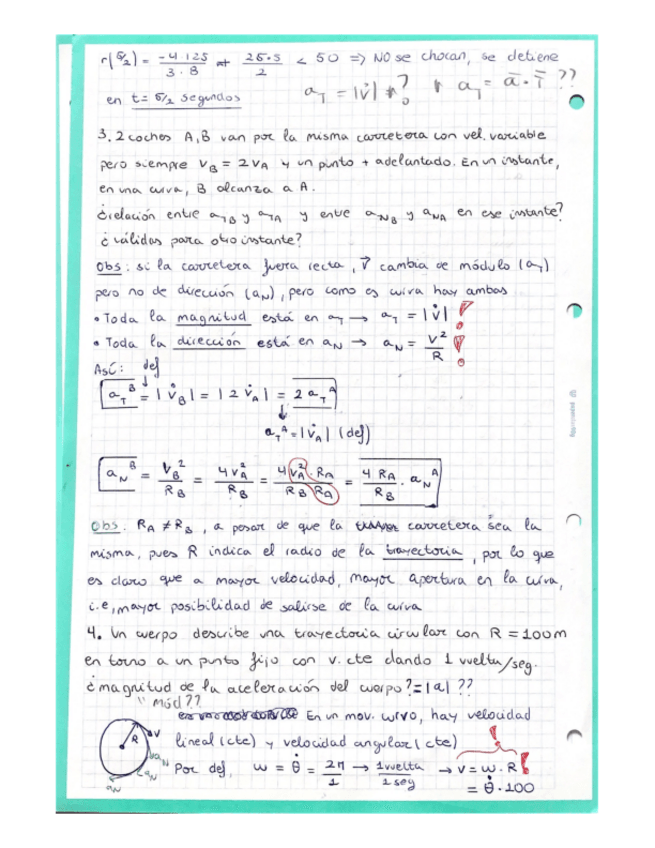 r(5/2) = -4·125 / 3·8 + 25·5 / 2 < 50 => NO se chocan, se detiene
en t = 5/2 segundos
a_T = |v̇| ? ! a_T = ā·T̄ ??
3. 2 coches A, B van por la misma carretera con vel. variable
pero siempre V_B = 2V_A y un punto + adelantado. En un instante,
en una curva, B alcanza a A.
¿relación entre a_TB y a_TA y entre a_NB y a_NA en ese instante?
¿válidas para otro instante?
Obs: si la carretera fuera recta, v⃗ cambia de módulo (a_T)
pero no de dirección (a_N), pero como es curva hay ambas
• Toda la magnitud está en a_T → a_T = |v̇| !
• Toda la dirección está en a_N → a_N = V² / R !
Así: def
a_T^B = |v̇_B| = |2 v̇_A| = 2 a_T^A
a_T^A = |v̇_A| (def)
a_N^B = V_B² / R_B = 4V_A² / R_B = 4V_A²·R_A / R_B R_A = 4 R_A / R_B · a_N^A
Obs: R_A ≠ R_B, a pesar de que la carretera sea la
misma, pues R indica el radio de la trayectoria, por lo que
es claro que a mayor velocidad, mayor apertura en la curva,
i.e, mayor posibilidad de salirse de la curva
4. Un cuerpo describe una trayectoria circular con R = 100m
en torno a un punto fijo con v. cte dando 1 vuelta/seg.
¿magnitud de la aceleración del cuerpo? = |a| ??
" mód??
En un mov. curvo, hay velocidad
lineal (cte) y velocidad angular (cte) !
R V a_N a_N a_N
Por def, ω = θ̇ = 2π / 1 → 1 vuelta / 1 seg → v = ω·R !
= θ̇·100